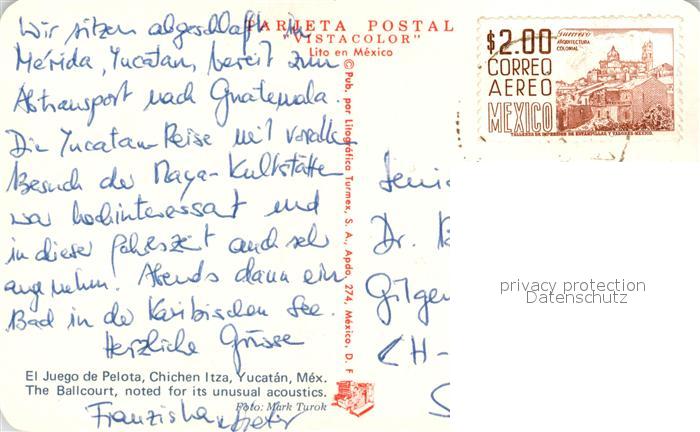 TARJETA POSTAL
"VISTACOLOR"
Lito en México
Wir sitzen abgeschlafft in
Mérida, Yucatan, bereit zum
Abtransport nach Guatemala.
Die Yucatan-Reise mit
Besuch der Maya-Kultstätten
war hochinteressant und
in dieser Jahreszeit auch sehr
angenehm! Abends dann ein
Bad in der Karibischen See.
Herzliche Grüsse
© Pub. por Litográfica Turmex, S. A., Apdo. 274, México, D. F
El Juego de Pelota, Chichen Itza, Yucatán, Méx.
The Ballcourt, noted for its unusual acoustics.
Foto: Mark Turok
Franziska
$2.00
Guerrero
ARQUITECTURA
COLONIAL
CORREO
AEREO
MEXICO
TALLERES DE IMPRESION DE ESTAMPILLAS Y VALORES-MEXICO.
Dr.
CH-
privacy protection
Datenschutz